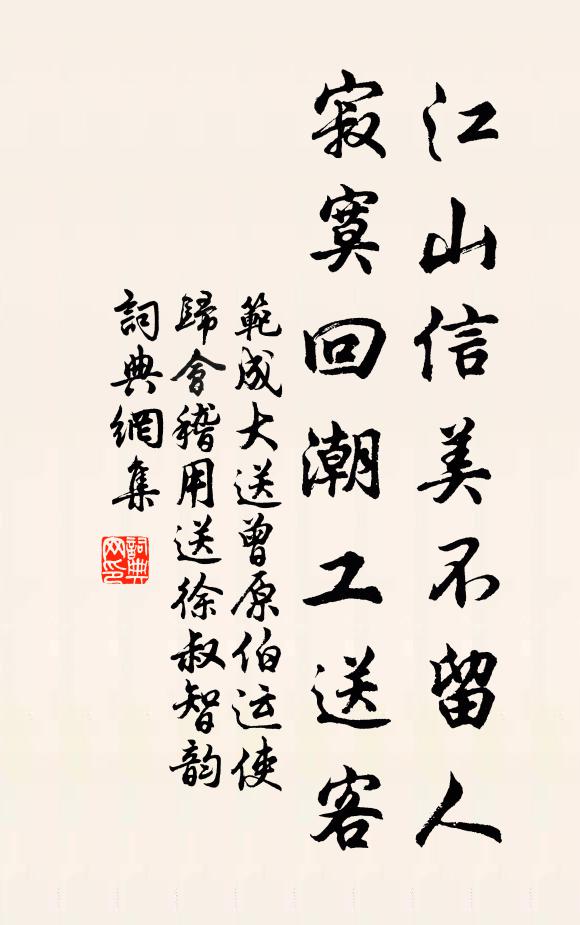 江山信美不留人
寂寞回潮工送客
範成大送曾原伯运使
歸會稽用送徐叔智韵
詞典網集
詞典
网印